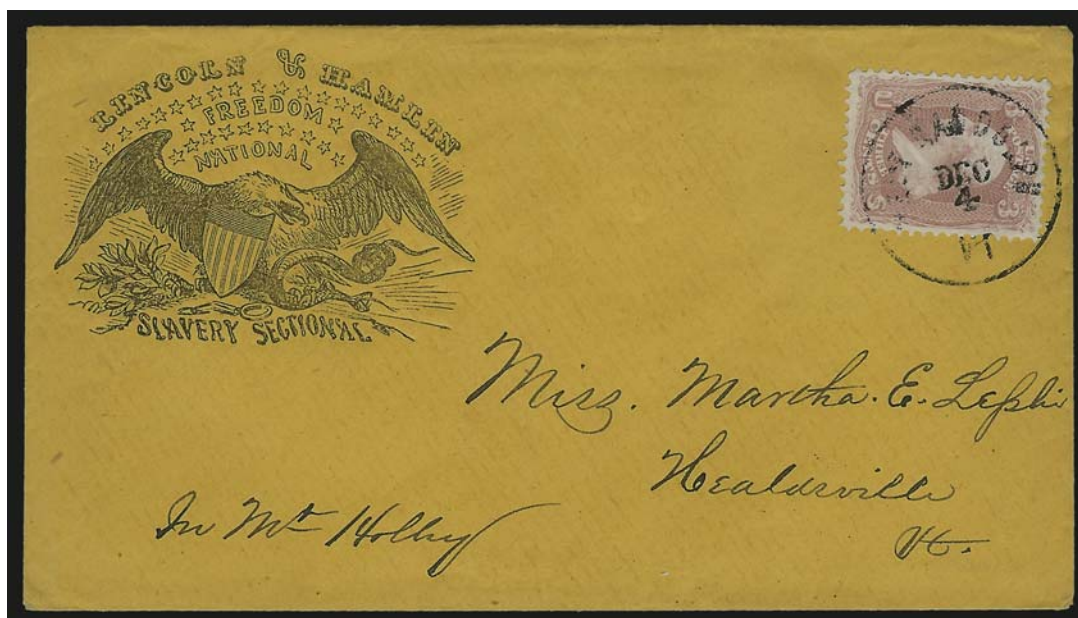 LINCOLN & HAMLIN
FREEDOM
NATIONAL
SLAVERY SECTIONAL
DEC
4
VT
3
U S
Miss. Martha. E.
Healdsville
In Mt Holley
Vt.